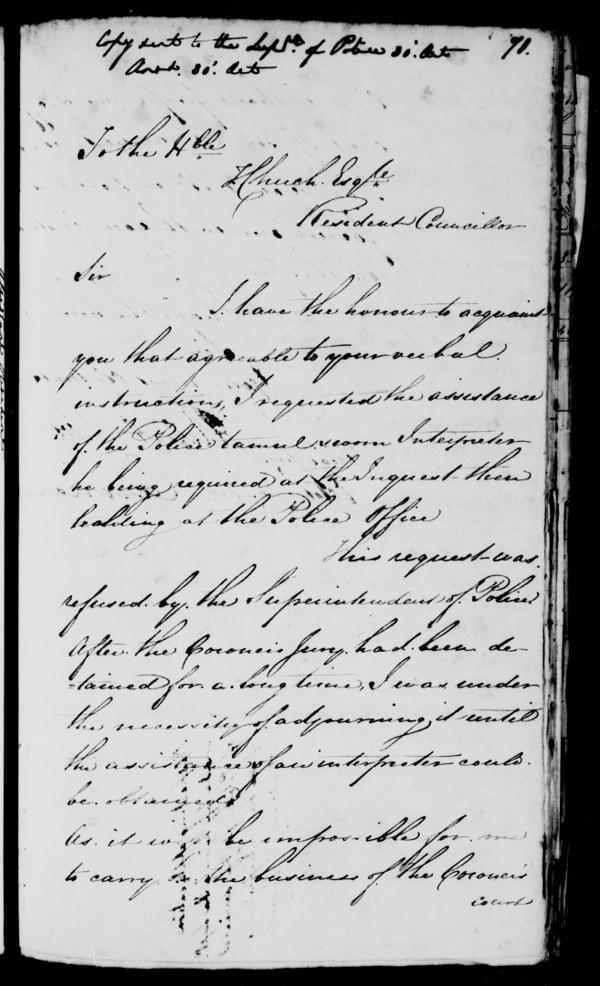 Copy sent to the Supdt. of Police 30. Octo
Ansd. 30. Octo
71.
To the Hble
Church Esqre.
Resident Councillor
Sir
I have the honour to acquaint
you that agreable to your verbal
instruction, I requested the assistance
of the Police tamul sworn Interpreter
he being required at the Inquest then
holding at the Police Office
This request was
refused by the Superintendent of Police
After the Coroners Jury had been de-
-tained for a long time, I was under
the necessity of adjourning it until
the assistance of an interpreter could
be obtained
As it will be impossible for me
to carry on the business of the Coroners
court